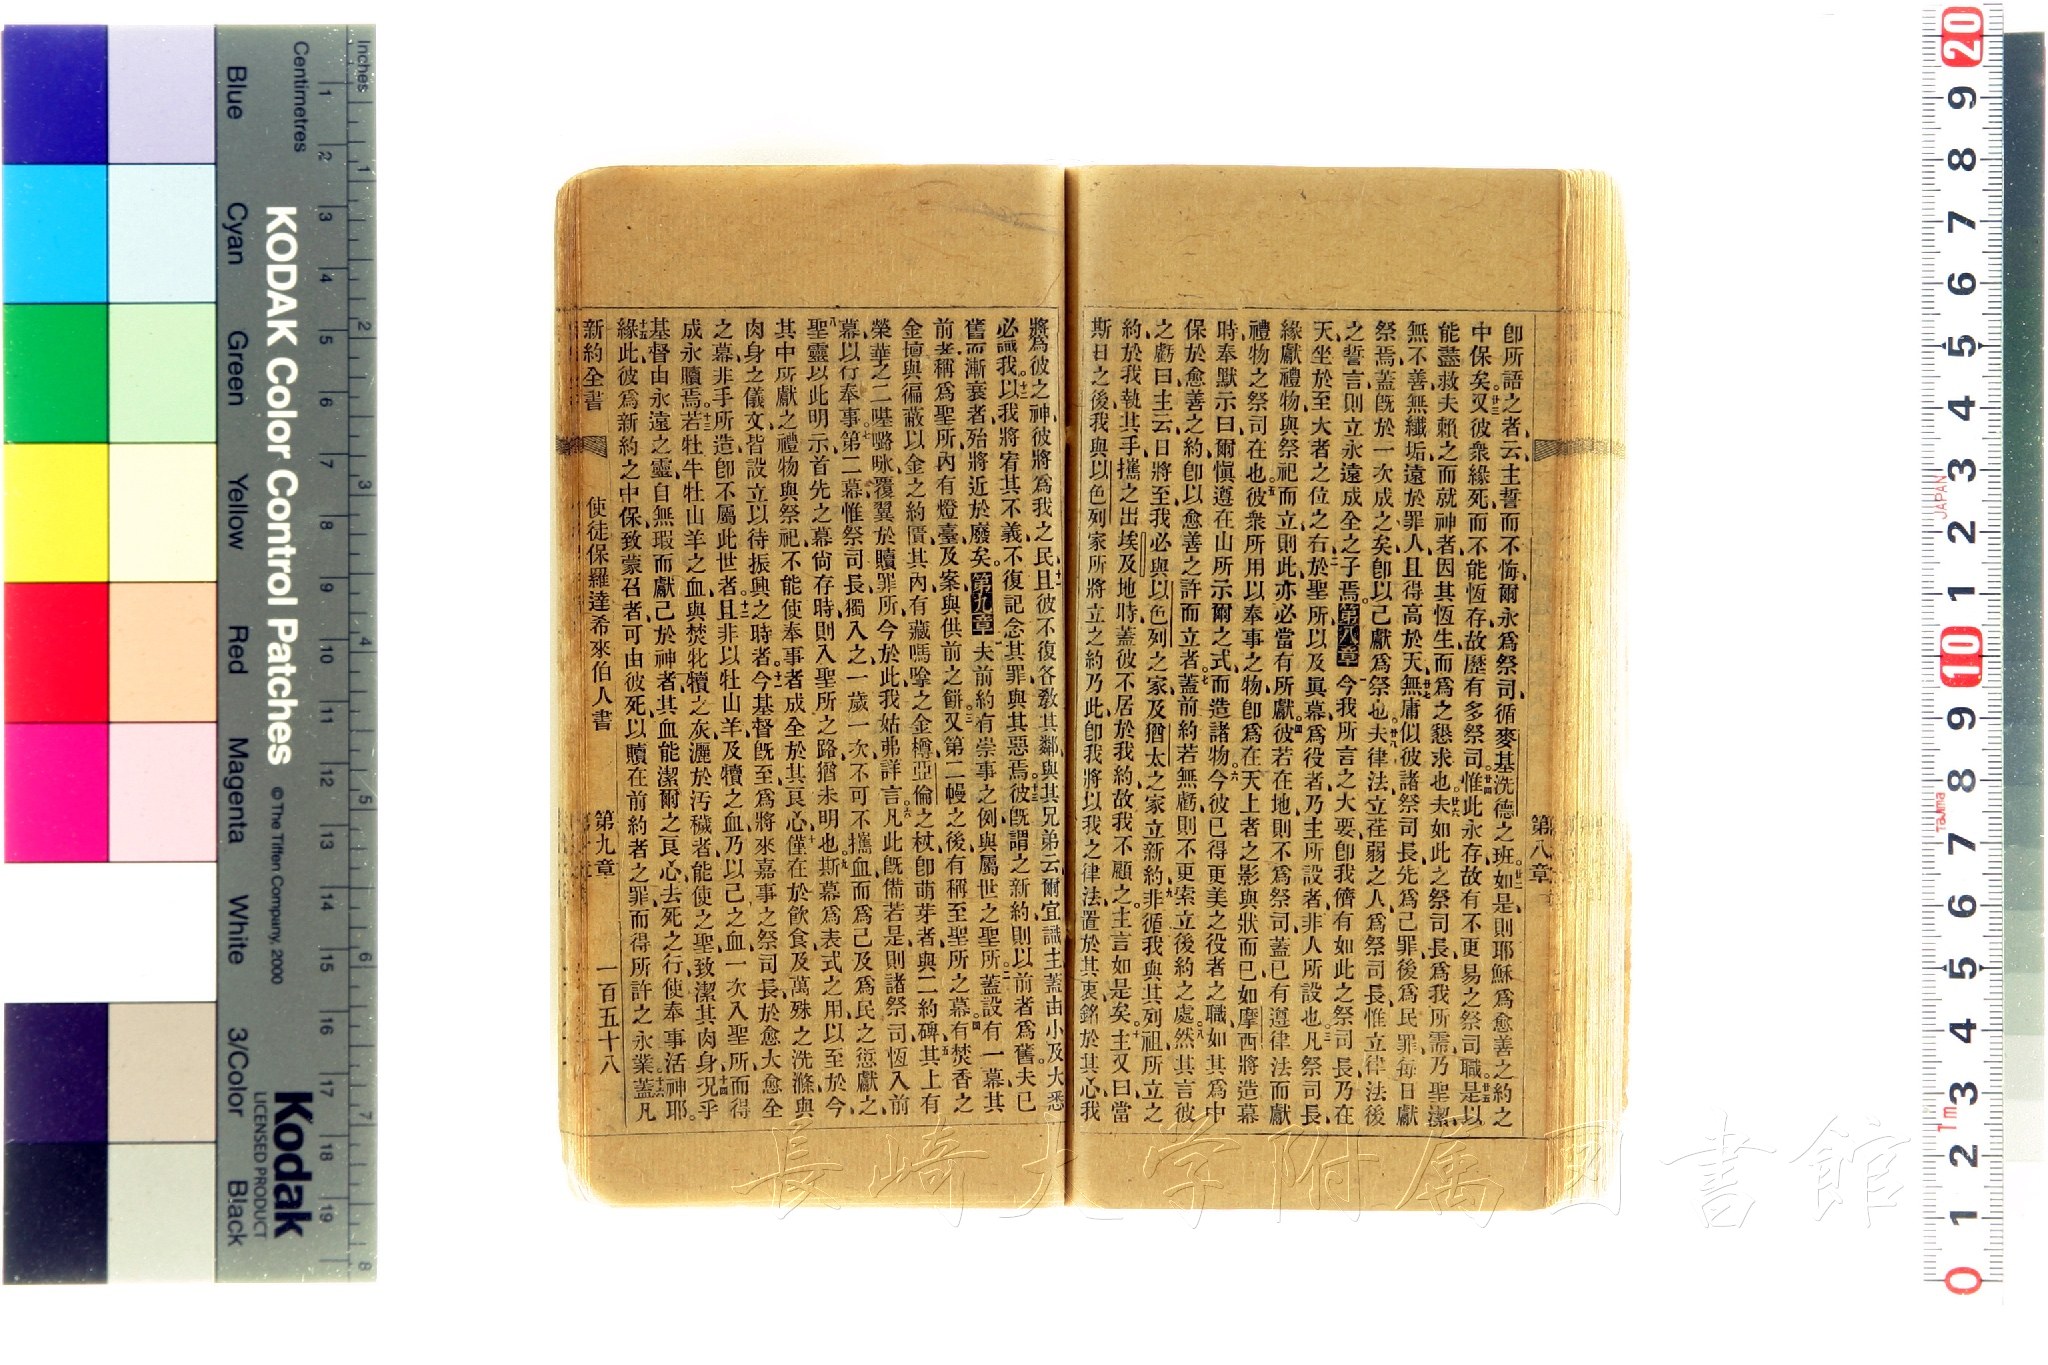 第八章
卽所語之者云主誓而不悔爾永爲祭司循麥基洗德之班如是則耶穌爲愈善之約之
中保矣廿三又彼衆緣死而不能恆存故歷有多祭司廿四惟此永存故有不更易之祭司職廿五是以
能盡救夫賴之而就神者因其恆生而爲之懇求也廿六夫如此之祭司長爲我所需乃聖潔
無不善無纖垢遠於罪人且得高於天廿七無庸似彼諸祭司長先爲己罪後爲民罪每日獻
祭焉蓋旣於一次成之矣卽以己獻爲祭也廿八夫律法立荏弱之人爲祭司長惟立律法後
之誓言則立永遠成全之子焉第八章一今我所言之大要卽我儕有如此之祭司長乃在
天坐於至大者之位之右二於聖所以及眞幕爲役者乃主所設者非人所設也三凡祭司長
緣獻禮物與祭祀而立則此亦必當有所獻四彼若在地則不爲祭司蓋已有遵律法而獻
禮物之祭司在也五彼衆所用以奉事之物卽爲在天上者之影與狀而已如摩西將造幕
時奉默示曰爾愼遵在山所示爾之式而造諸物六今彼已得更美之役者之職如其爲中
保於愈善之約卽以愈善之許而立者七蓋前約若無虧則不更索立後約之處八然其言彼
之虧曰主云日將至我必與以色列之家及猶太之家立新約九非循我與其列祖所立之
約於我執其手攜之出埃及地時蓋彼不居於我約故我不顧之主言如是矣十主又曰當
斯日之後我與以色列家所將立之約乃此卽我將以我之律法置於其衷銘於其心我
將爲彼之神彼將爲我之民十一且彼不復各敎其鄰與其兄弟云爾宜識主蓋由小及大悉
必識我十二以我將宥其不義不復記念其罪與其惡焉十三彼旣謂之新約則以前者爲舊夫已
舊而漸衰者殆將近於廢矣第九章一夫前約有崇事之例與屬世之聖所二蓋設有一幕其
前者稱爲聖所內有燈臺及案與供前之餅三又第二幔之後有稱至聖所之幕四有焚香之
金壇與徧蔽以金之約匱其內有藏嗎㗔之金樽亞倫之杖卽萌芽者與二約碑五其上有
榮華之二𠼻嚕㖠覆翼於贖罪所今於此我姑弗詳言六凡此旣備若是則諸祭司恆入前
幕以行奉事七第二幕惟祭司長獨入之一歲一次不可不攜血而爲己及爲民之愆獻之
八聖靈以此明示首先之幕尙存時則入聖所之路猶未明也九斯幕爲表式之用以至於今
其中所獻之禮物與祭祀不能使奉事者成全於其良心十僅在於飮食及萬殊之洗滌與
肉身之儀文皆設立以待振興之時者十一今基督旣至爲將來嘉事之祭司長於愈大愈全
之幕非手所造卽不屬此世者十二且非以牡山羊及犢之血乃以己之血一次入聖所而得
成永贖焉十三若牡牛牡山羊之血與焚牝犢之灰灑於汚穢者能使之聖致潔其肉身十四況乎
基督由永遠之靈自無瑕而獻己於神者其血能潔爾之良心去死之行使奉事活神耶
十五緣此彼爲新約之中保致蒙召者可由彼死以贖在前約者之罪而得所許之永業十六蓋凡
新約全書 使徒保羅達希來伯人書 第九章 一百五十八
Inches
Centimetres
Blue Cyan Green Yellow Red Magenta White 3/Color Black
KODAK Color Control Patches © The Tiffen Company, 2000
Kodak
LICENSED PRODUCT
JAPAN
Tajima
長崎大学附属図書館